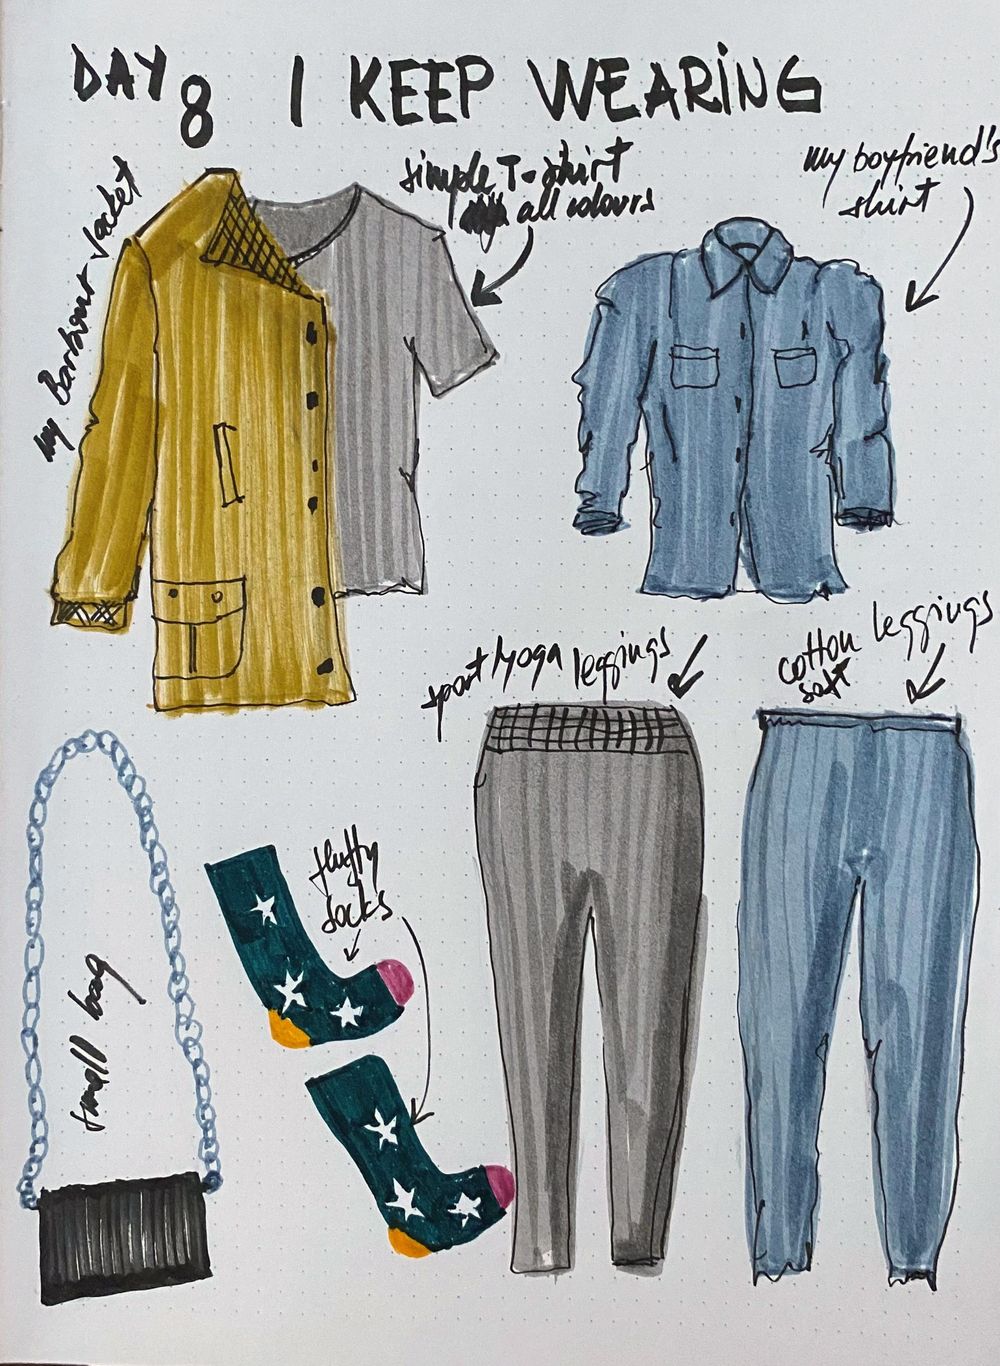 DAY 8 I KEEP WEARING
my Barbour Jacket
simple T-shirt
all colours
my boyfriend's
shirt
sport/yoga leggings
cotton leggings
soft
fluffy
socks
small bag